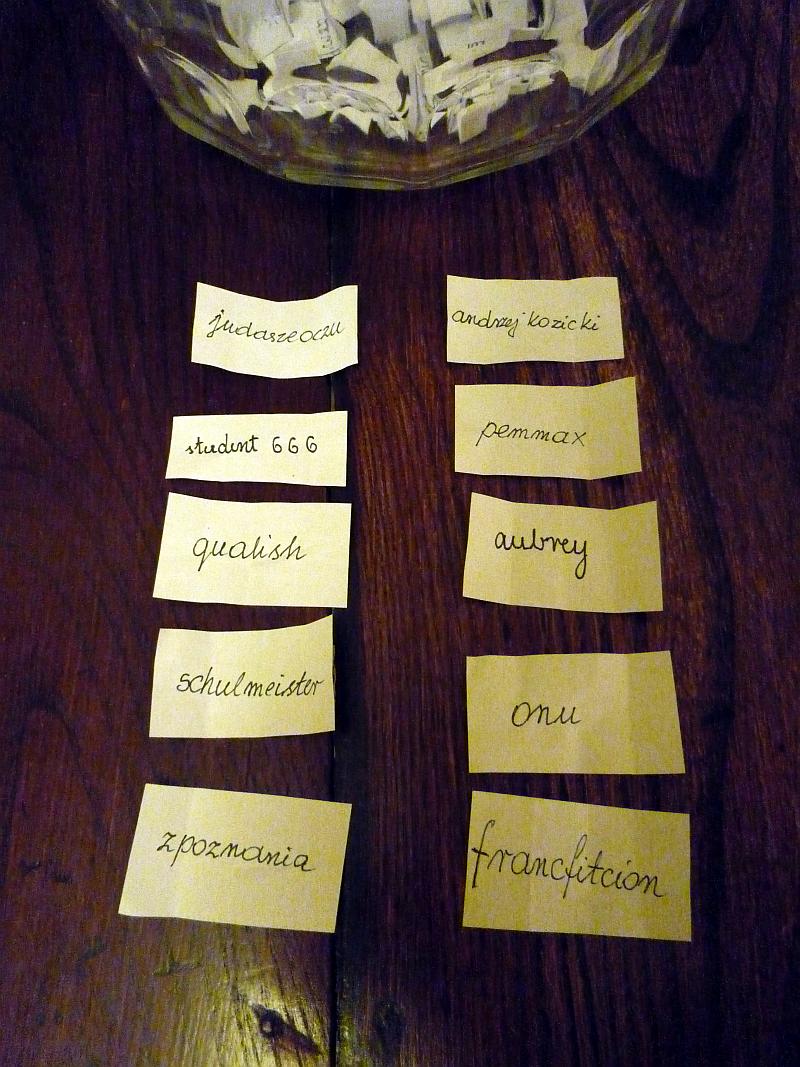 judaszeoczu
student 666
qualish
schulmeister
zpoznania
andrzej kozicki
pemmax
aubrey
onu
francfitcion